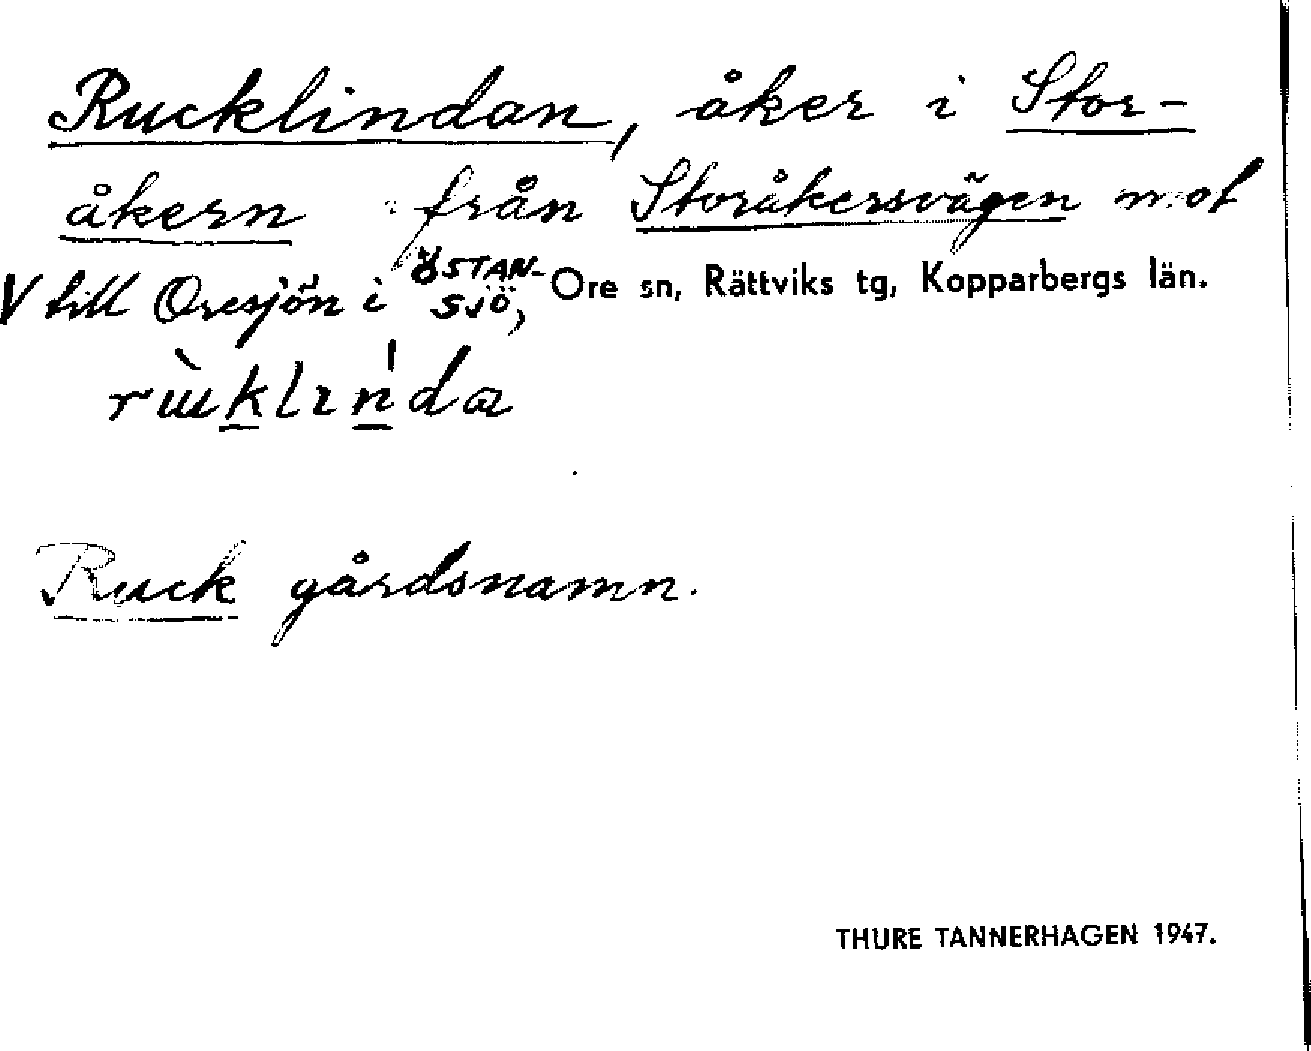 Rucklindan, åker i Stor-
åkern från Storåkersvägen mot
V till Oresjön i ÖSTAN-
SJÖ, Ore sn, Rättviks tg, Kopparbergs län.
rùklında
Ruck gårdsnamn.
THURE TANNERHAGEN 1947.